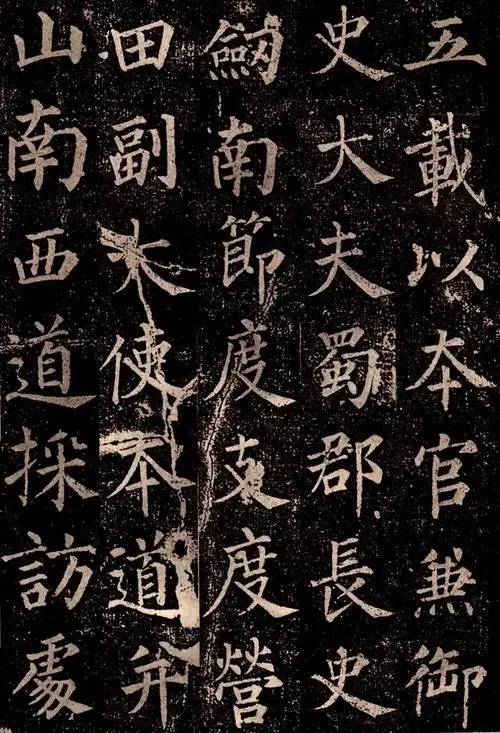 五載以夲官兼御
史大夫蜀郡長史
劒南節度支度營
田副大使本道弁
山南西道採訪處